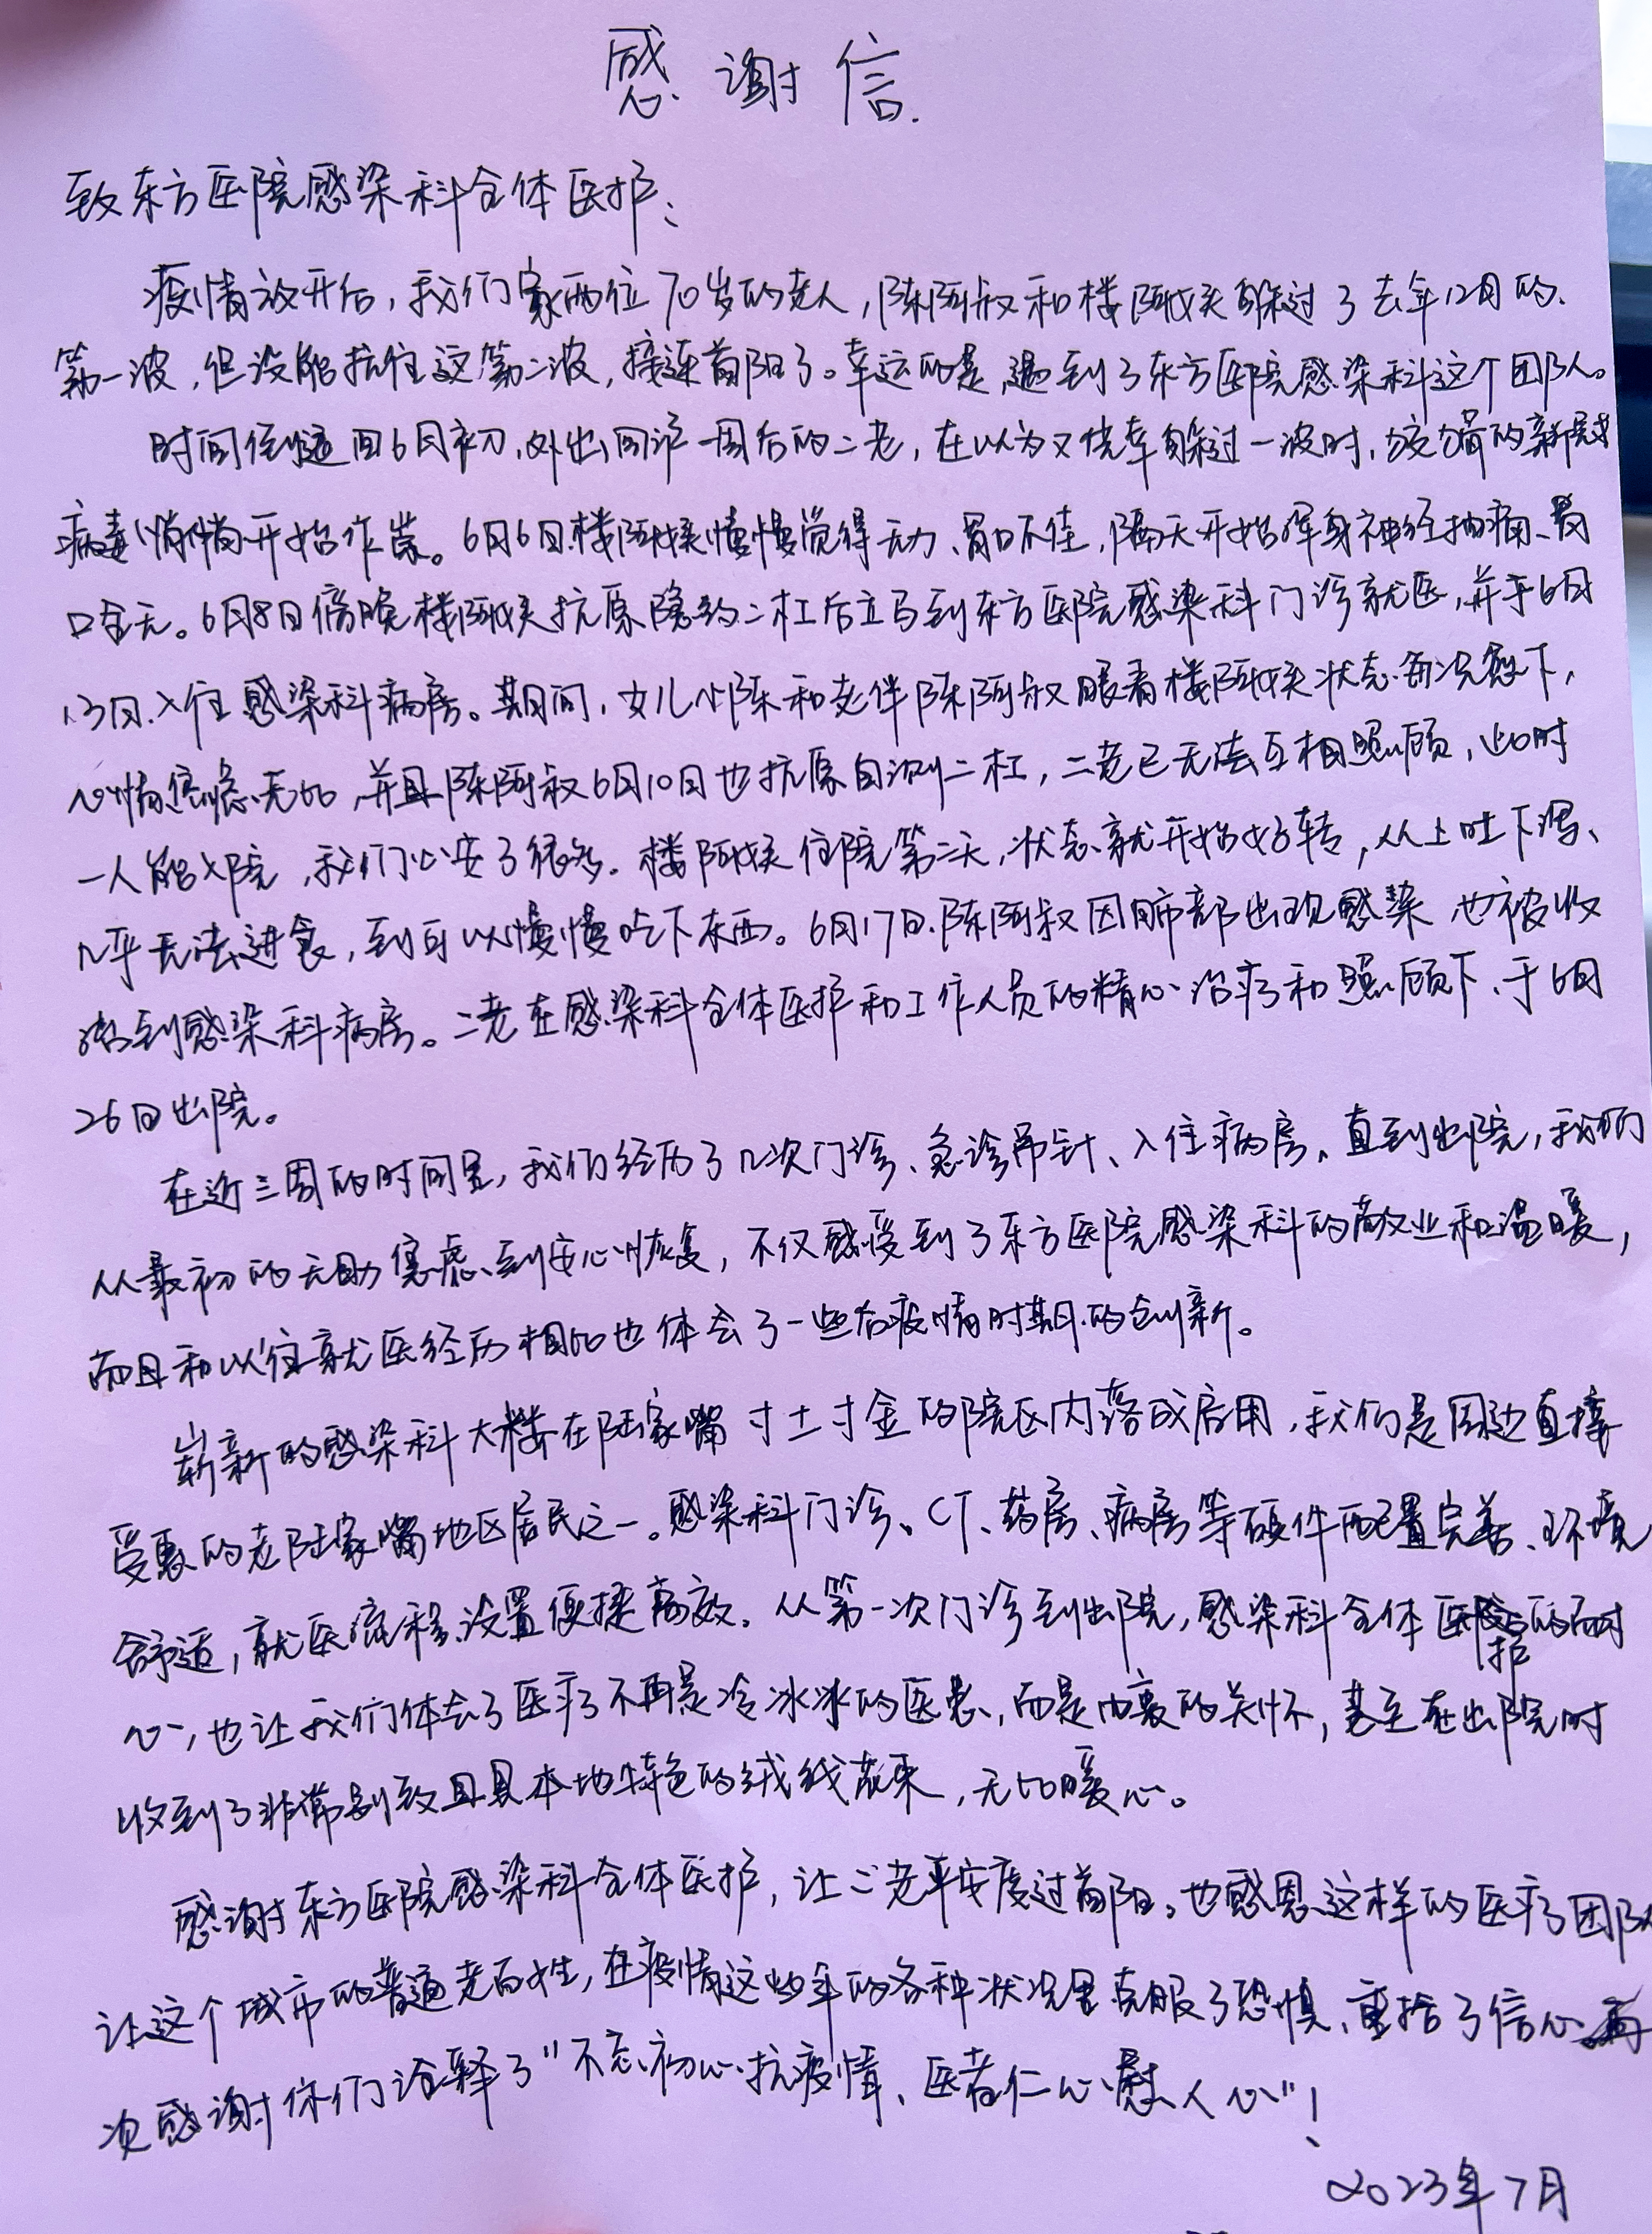 感谢信
致东方医院感染科全体医护:
疫情放开后,我们家两位70岁的老人,陈阿叔和楼阿姨躲过了去年12月的
第一波,但没能抗住这第二波,接连首阳了。幸运的是,遇到了东方医院感染科这个团队。
时间倒回6月初,外出回沪一周后的二老,在以为又侥幸躲过一波时,狡猾的新冠
病毒悄悄开始作祟。6月6日楼阿姨慢慢觉得无力、胃口不佳,隔天开始浑身神经抽痛、胃
口全无。6月8日傍晚楼阿姨抗原隐约二杠后立马到东方医院感染科门诊就医,并于6月
13日入住感染科病房。期间,女儿小陈和老伴陈阿叔眼看楼阿姨状态每况愈下,
心情焦虑无比,并且陈阿叔6月10日也抗原自测二杠,二老已无法互相照顾,此时
一人能入院,我们心安了很多。楼阿姨住院第二天,状态就开始好转,从上吐下泻、
几乎无法进食,到可以慢慢吃下东西。6月17日陈阿叔因肺部出现感染也被收
治到感染科病房。二老在感染科全体医护和工作人员的精心治疗和照顾下,于6月
26日出院。
在近三周的时间里,我们经历了几次门诊、急诊吊针、入住病房,直到出院,我们
从最初的无助焦虑到安心恢复,不仅感受到了东方医院感染科的敬业和温暖,
而且和以往就医经历相比也体会了一些后疫情时期的创新。
崭新的感染科大楼在陆家嘴寸土寸金的院区内落成启用,我们是周边直接
受惠的老陆家嘴地区居民之一。感染科门诊、CT、药房、病房等硬件配置完善、环境
舒适,就医流程设置便捷高效。从第一次门诊到出院,感染科全体医护的耐
心,也让我们体会了医疗不再是冷冰冰的医患,而是由衷的关怀,甚至在出院时
收到了非常别致且具本地特色的绒线花束,无比暖心。
感谢东方医院感染科全体医护,让二老平安度过首阳。也感恩这样的医疗团队
让这个城市的普通老百姓,在疫情这些年的各种状况里克服了恐惧、重拾了信心。再
次感谢你们诠释了"不忘初心抗疫情、医者仁心慰人心"!
2023年7月